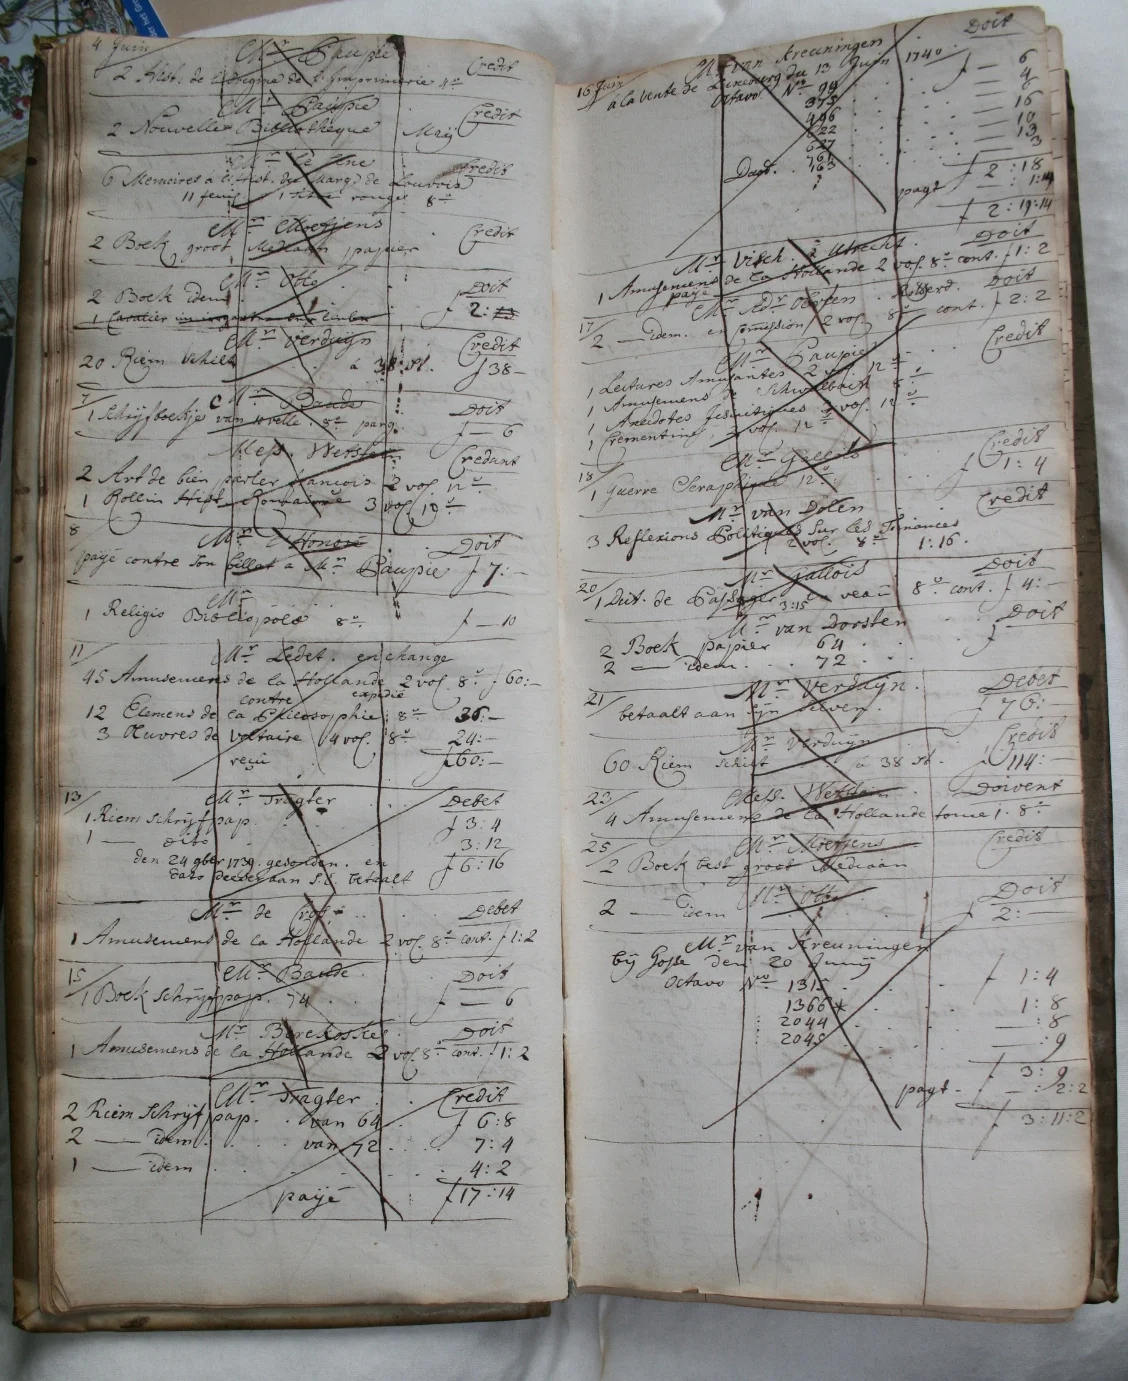 4 Juin
Mr. Paupie Credit
2 Hist. de l'origine de l'Imprimerie 4o
Mr. Paupie Credit
2 Nouvelle Bibliotheque May
Credit
6 Memoires a l'hist. du Marqs de Louvois
11 feuil. 1 titre rouge 8o
Mr. Mretjens Credit
2 Boek groot Mediaan papier
Mr. Otto Doit
2 Boek idem ƒ 2:
Mr. Verduyn Credit
20 Riem Schilt à 38 st. ƒ38—
7 Mr. Baude Doit
1 Schrijfboekje van 4 velle 8o parq. ƒ—6
Mess. Wetstein Credunt
2 Art de bien parler francois 2 vol. 12o
1 Rollin Hist. Romaine 3 vol 12o
8 Mr. l'Honoré Doit
payé contre son billet a Mr. Paupie ƒ 7:—
Mr.
1 Religio Bibliopolæ 8o ƒ—10
11 Mr. Ledet. en change
45 Amusemens de la Hollande 2 vol. 8o ƒ60:—
contre expedié
12 Elemens de la Philosophie 8o 36:—
3 Œuvres de Voltaire 4 vol. 8o 24:—
reçu ƒ60:—
13 Mr. Tragter Debet
1 Riem Schrijf pap. ƒ 3:4
1 — dito 3:12
den 24 9ber 1739. gesonden. en ƒ 6:16
dato deeser aan S.E. betaalt
Mr. de Cros Debet
1 Amusemens de la Hollande 2 vol 8o cont. ƒ1:2
15 Mr. Baude Doit
1 Boek Schrijfpap. 74 ƒ—6
Mr. Berckossee Doit
1 Amusemens de la Hollande 2 vol 8o cont. ƒ1:2
Mr. Tragter Credit
2 Riem Schrijf pap. van 64 ƒ 6:8
2 — idem van 72 7:4
1 — idem 4:2
payé ƒ17:14
Doit
16 Juin Mr. van Kreuningen
a la vente de Lunebourg du 13 Juin 1740.
Octavo No. 99 ƒ—6
375 —4
496 —16
622 —10
627 —13
761 —3
Dupt. 763 ƒ 2:18
pagt —:1:14
ƒ 2:19:14
Mr. Visch. à Utrecht. Doit
1 Amusemens de la Hollande 2 vol 8o cont. ƒ1:2
payé
17 Mr. Adr. Rotterd. Doit
2 — idem. en Comission 2 vol. 8o cont. ƒ2:2
Mr. Paupie Credit
1 Lectures Amusantes 2 vol 12o
1 Amusemens de Schwalbach 8o
1 Anecdotes Jesuitiques 3 vol. 12o
1 Clementine 2 vol. 12o
18 Mr. Gallois Credit
1 Guerre Seraphique 12o ƒ 1:4
Mr. van Dolen Credit
3 Reflexions Politiques Sur les Finances
2 vol. 8o 1:16.
20 Mr. Gallois Doit
1 Dict. de Passager en veau 8o cont. ƒ 4:—
3:15
Mr. van Dorsten Doit
2 Boek papier 64 ƒ
2 — idem 72
21 Mr. Verduyn. Debet
betaalt aan sijn neven. ƒ 76:—
Mr. Verduyn Credit
60 Riem Schilt à 38 st. ƒ114:—
23 Mess. Wetstein Doivent
4 Amusemens de la Hollande tome 1. 8o
25 Mr. Mretjens Credit
2 Boek best groot Mediaan
Mr. Otto Doit
2 — idem ƒ 2:—
Mr. van Kreuningen
bij Gosse den 20 Junij
Octavo No. 1315 ƒ 1:4
1366* 1:8
2044 —:8
2045 —:9
ƒ 3:9
pagt —:2:2
ƒ 3:11:2